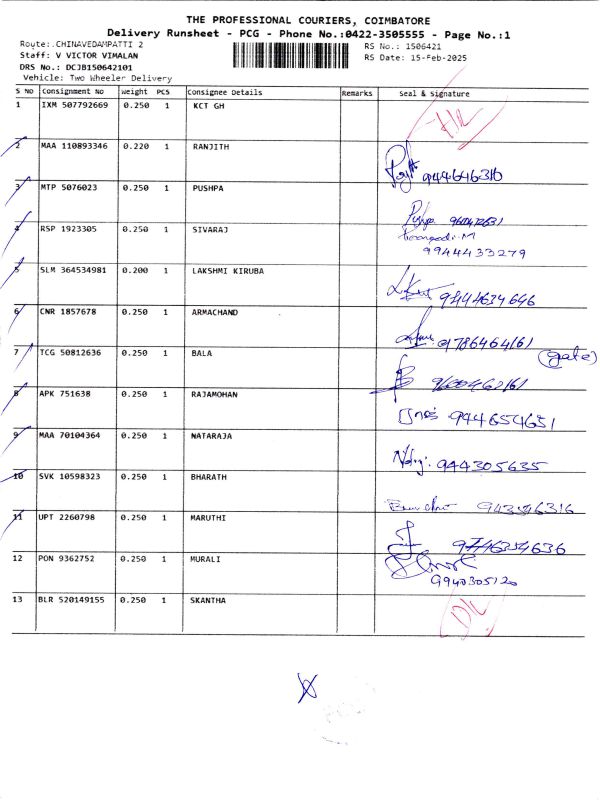 THE PROFESSIONAL COURIERS, COIMBATORE
Delivery Runsheet - PCG - Phone No.:0422-3505555 - Page No.:1
Route:.CHINAVEDAMPATTI 2 RS No.: 1506421
Staff: V VICTOR VIMALAN RS Date: 15-Feb-2025
DRS No.: DCJB150642101
Vehicle: Two Wheeler Delivery
S NO Consignment No Weight PCS Consignee Details Remarks Seal & Signature
1 IXM 507792669 0.250 1 KCT GH
2 MAA 110893346 0.220 1 RANJITH 944646310
3 MTP 5076023 0.250 1 PUSHPA
4 RSP 1923305 0.250 1 SIVARAJ 9944433279
5 SLM 364534981 0.200 1 LAKSHMI KIRUBA 9444634646
6 CNR 1857678 0.250 1 ARMACHAND 9786464161
7 TCG 50812636 0.250 1 BALA (gate)
8 APK 751638 0.250 1 RAJAMOHAN 944654651
9 MAA 70104364 0.250 1 NATARAJA 944305635
10 SVK 10598323 0.250 1 BHARATH 943546316
11 UPT 2260798 0.250 1 MARUTHI
12 PON 9362752 0.250 1 MURALI 9940305120
13 BLR 520149155 0.250 1 SKANTHA D/L